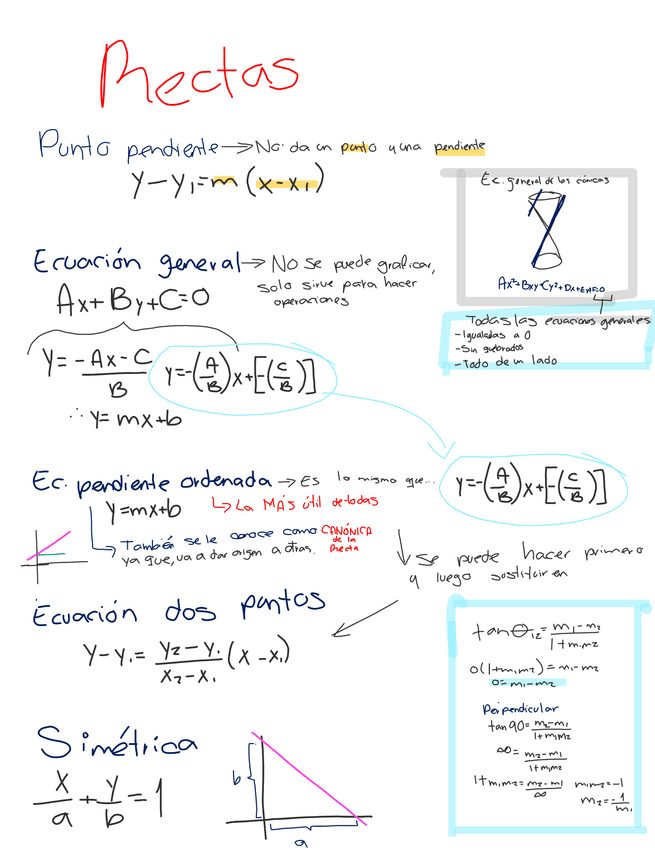 Rectas
Punto pendiente → Nos da un punto y una pendiente
y-y₁=m(x-x₁)
Ec. general de las cónicas
Ax²+Bxy+Cy²+Dx+Ey+F=0
Todas las ecuaciones generales
-Igualadas a 0
-Sin quebrados
-Todo de un lado
Ecuación general → No se puede graficar,
solo sirve para hacer
operaciones
Ax+By+C=0
y= (-Ax-C)/B y=-(A/B)x+[-(C/B)]
∴ y=mx+b
Ec. pendiente ordenada → Es lo mismo que... y=-(A/B)x+[-(C/B)]
y=mx+b ↳ La MÁS útil de todas
↳ También se le conoce como CANÓNICA de la Recta
ya que, va a dar origen a otras.
↓ Se puede hacer primero
y luego sustituir en
Ecuación dos puntos
y-y₁= (y₂-y₁)/(x₂-x₁) (x-x₁)
tan θ₁₂= (m₁-m₂)/(1+m₁m₂)
0(1+m₁m₂)=m₁-m₂
0=m₁-m₂
Perpendicular
tan 90= (m₂-m₁)/(1+m₁m₂)
∞= (m₂-m₁)/(1+m₁m₂)
1+m₁m₂= (m₂-m₁)/∞ m₁m₂=-1
m₂= -1/m₁
Simétrica
x/a + y/b = 1
b
a